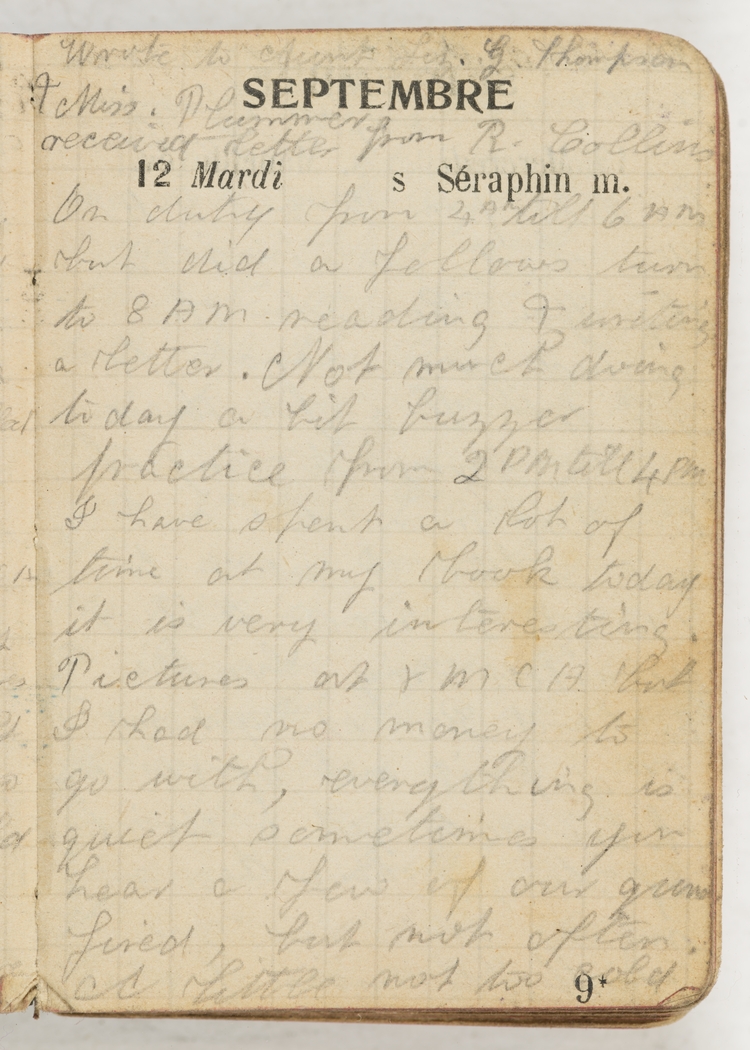 Wrote to Aunt Liz. G. Thompson
SEPTEMBRE
& Miss. Plummer
received letter from R. Collins
12 Mardi s Séraphin m.
On duty from 4AM till 6 AM
but did a fellows turn
to 8 AM reading & writing
a letter. Not much doing
today a bit buzzer
practice from 2 PM till 4 PM
I have spent a lot of
time at my book today
it is very interesting.
Pictures at YMCA but
I had no money to
go with, everything is
quiet sometimes you
hear a few of our guns
fired, but not often.
A little not too cold
9*